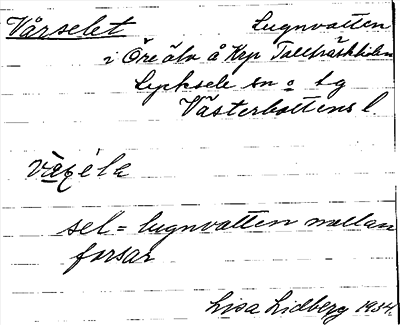 Vårselet Lugnvatten
i Öre älv å Krp Tallträskliden
Lycksele sn o. lg
Västerbottens l.
sel = lugnvatten mellan
forsar
Lisa Lidberg 1934.